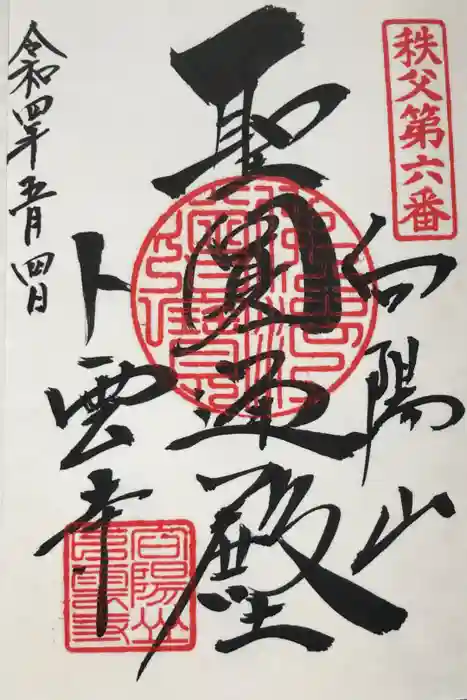 秩父第六番
向陽山
聖圓通殿
卜雲寺
令和四年五月四日
向陽山
卜雲寺